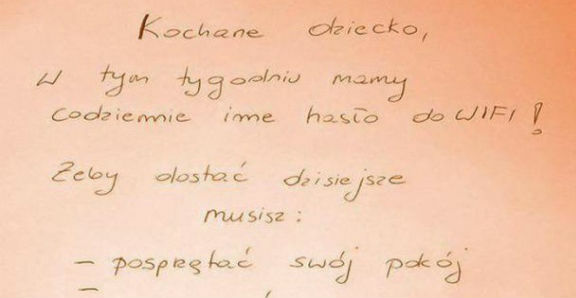 Kochane dziecko,
W tym tygodniu mamy
codziennie inne hasło do WIFI!
Żeby dostać dzisiejsze
musisz:
- posprzątać swój pokój
-